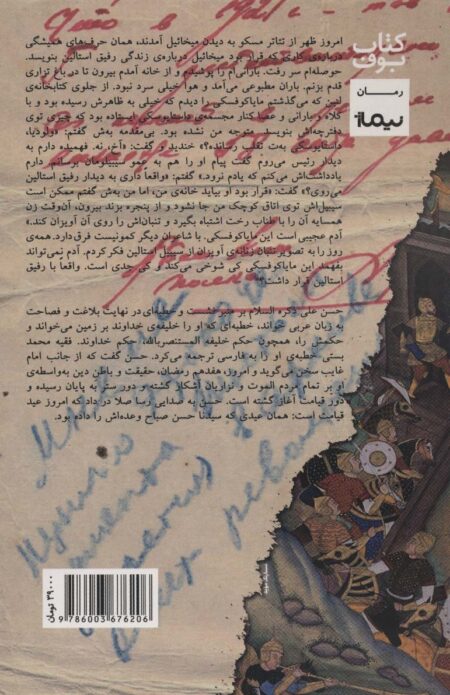 کتاب
بوف
رمـــان
نیماژ
امروز ظهر از تئاتر مسکو به دیدن میخائیل آمدند، همان حرف‌های همیشگی
درباره‌ی کاری که قرار بود میخائیل درباره‌ی زندگی رفیق استالین بنویسد.
حوصله‌ام سر رفت. بارانی‌ام را پوشیدم و از خانه آمدم بیرون تا در باغ تزاری
قدم بزنم. باران مطبوعی می‌آمد و هوا خیلی سرد نبود. از جلوی کتابخانه‌ی
لنین که می‌گذشتم مایاکوفسکی را دیدم که خیلی به ظاهرش رسیده بود و با
کلاه و بارانی و عصا کنار مجسمه‌ی داستایوفسکی ایستاده بود که چیزی توی
دفترچه‌اش بنویسد. متوجه من نشده بود. بی‌مقدمه به‌ش گفتم: «ولودیا،
داستایوفسکی به‌ت تقلب رسانده؟» خندید و گفت: «آخ، نه. فهمیده دارم به
دیدار رئیس می‌روم گفت پیام او را هم به عمو سیبیلومان برسانم. دارم
یادداشت‌اش می‌کنم که یادم نرود.» گفتم: «واقعا داری به دیدار رفیق استالین
می‌روی؟» گفت: «قرار بود او بیاید خانه‌ی من، اما من به‌ش گفتم ممکن است
سیبیل‌اش توی اتاق کوچک من جا نشود و از پنجره بزند بیرون، آن‌وقت زن
همسایه آن را با طناب رخت اشتباه بگیرد و تنبان‌اش را روی آن آویزان کند.»
آدم عجیبی است این مایاکوفسکی. با شاعران دیگر کمونیست فرق دارد. همه‌ی
روز را به تصویر تنبان زنانه‌ی آویزان از سیبیل استالین فکر کردم. آدم نمی‌تواند
بفهمد این مایاکوفسکی کی شوخی می‌کند و کی جدی است. واقعا با رفیق
استالین قرار داشت؟
حسن علی ذکره السلام بر منبر نشست و خطبه‌ای در نهایت بلاغت و فصاحت
به زبان عربی خواند، خطبه‌ای که او را خلیفه‌ی خداوند بر زمین می‌خواند و
حکمش را، همچون حکم خلیفه المستنصربالله، حکم خداوند. فقیه محمد
بستی خطبه‌ی او را به فارسی ترجمه می‌کرد. حسن گفت که از جانب امام
غایب سخن می‌گوید و امروز، هفدهم رمضان، حقیقت و باطن دین به‌واسطه‌ی
او بر تمام مردم الموت و نزاریان آشکار گشته و دور ستر به پایان رسیده و
دور قیامت آغاز گشته است. حسن به صدایی رسا صلا در داد که امروز عید
قیامت است: همان عیدی که سیدنا حسن صباح وعده‌اش را داده بود.
۳۹۰۰۰ تومان
9 786003 676206